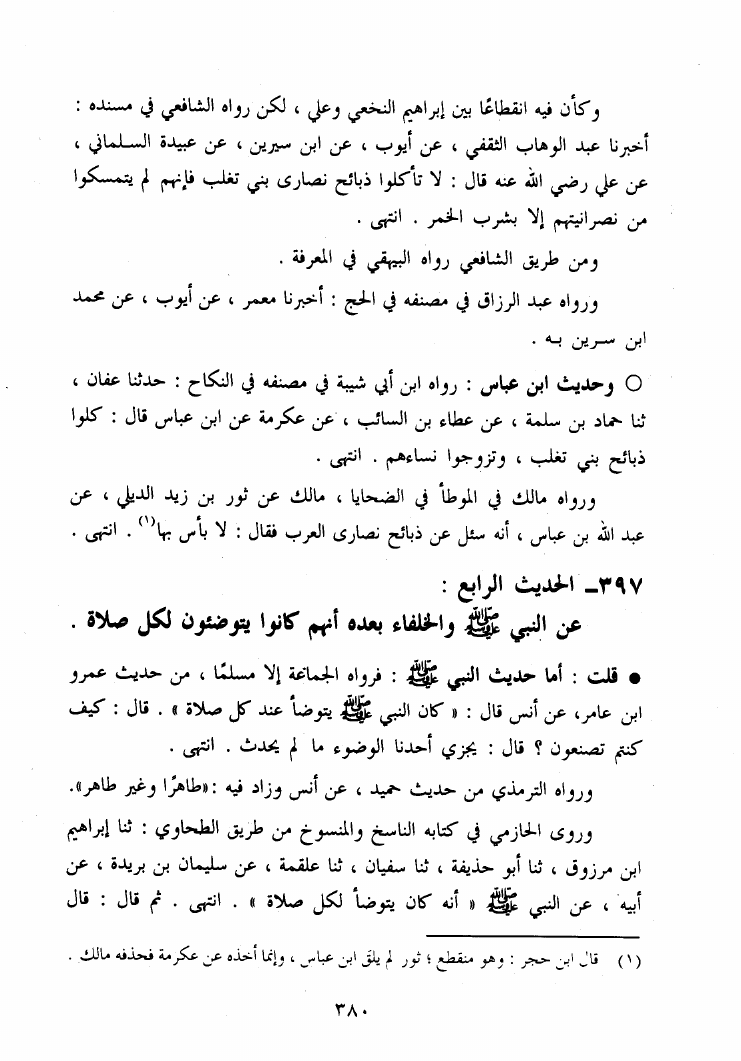 وكأن فيه انقطاعًا بين إبراهيم النخعي وعلي ، لكن رواه الشافعي في مسنده :
أخبرنا عبد الوهاب الثقفي ، عن أيوب ، عن ابن سيرين ، عن عبيدة السلماني ،
عن علي رضي الله عنه قال : لا تأكلوا ذبائح نصارى بني تغلب فإنهم لم يتمسكوا
من نصرانيتهم إلا بشرب الخمر . انتهى .
ومن طريق الشافعي رواه البيهقي في المعرفة .
ورواه عبد الرزاق في مصنفه في الحج : أخبرنا معمر ، عن أيوب ، عن محمد
ابن سرين به .
○ وحديث ابن عباس : رواه ابن أبي شيبة في مصنفه في النكاح : حدثنا عفان ،
ثنا حماد بن سلمة ، عن عطاء بن السائب ، عن عكرمة عن ابن عباس قال : كلوا
ذبائح بني تغلب ، وتزوجوا نساءهم . انتهى .
ورواه مالك في الموطأ في الضحايا ، مالك عن ثور بن زيد الديلي ، عن
عبد الله بن عباس ، أنه سئل عن ذبائح نصارى العرب فقال : لا بأس بها(١) . انتهى .
٣٩٧ـ الحديث الرابع :
عن النبي ﷺ والخلفاء بعده أنهم كانوا يتوضئون لكل صلاة .
● قلت : أما حديث النبي ﷺ : فرواه الجماعة إلا مسلمًا ، من حديث عمرو
ابن عامر، عن أنس قال : « كان النبي ﷺ يتوضأ عند كل صلاة » . قال : كيف
كنتم تصنعون ؟ قال : يجزي أحدنا الوضوء ما لم يحدث . انتهى .
ورواه الترمذي من حديث حميد ، عن أنس وزاد فيه :«طاهرًا وغير طاهر».
وروى الحازمي في كتابه الناسخ والمنسوخ من طريق الطحاوي : ثنا إبراهيم
ابن مرزوق ، ثنا أبو حذيفة ، ثنا سفيان ، ثنا علقمة ، عن سليمان بن بريدة ، عن
أبيه ، عن النبي ﷺ « أنه كان يتوضأ لكل صلاة » . انتهى . ثم قال : قال
(١) قال ابن حجر : وهو منقطع ؛ ثور لم يلق ابن عباس ، وإنما أخذه عن عكرمة فحذفه مالك .
٣٨٠